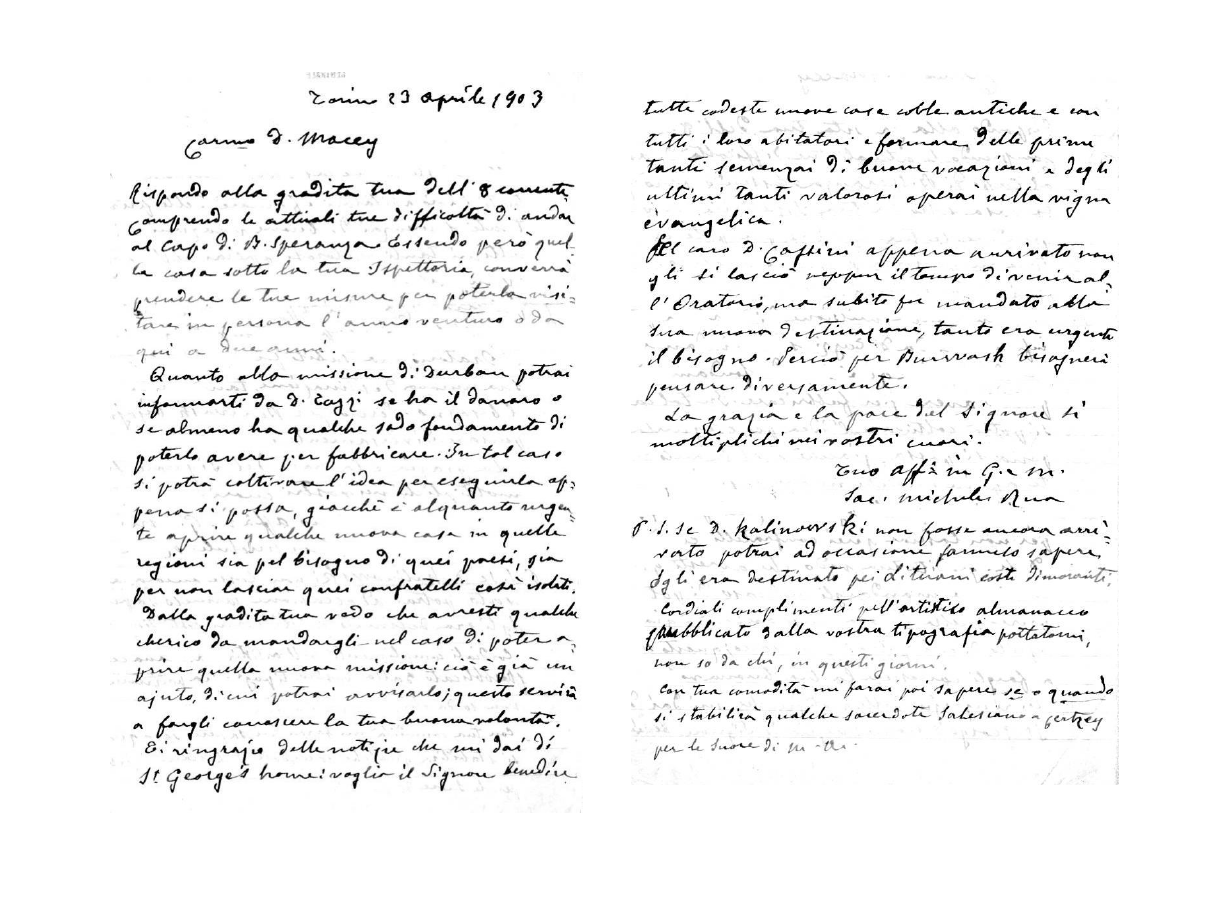 Torino 23 aprile 1903
Carmo D. Macey
Rispondo alla gradita tua dell' 8 corrente
Comprendo le attuali tue difficoltà di andar
al Capo di B. Speranza. Essendo però quel
la casa sotto la tua Ispettoria, converrà
prendere le tue misure per poterla visi=
tare in persona l'anno venturo o da
qui a due anni.
Quanto alla missione di Durban potrai
informarti da D. Tozzi se ha il danaro o
se almeno ha qualche sodo fondamento di
poterlo avere per fabbricare. In tal caso
si potrà coltivare l'idea per eseguirla ap=
pena si possa, giacchè è alquanto urgen=
te aprire qualche nuova casa in quelle
regioni sia pel bisogno di quei paesi, sia
per non lasciar quei confratelli così isolati.
Dalla gradita tua vedo che avresti qualche
chierico da mandargli nel caso di poter a=
prire quella nuova missione: ciò è già un
ajuto, di cui potrai avvisarlo; questo servirà
a fargli conoscere la tua buona volontà.
Ti ringrazio delle notizie che mi dai di
St George's home: voglia il Signore benedire
tutte codeste nuove case colle antiche e con
tutti i loro abitatori e formare delle prime
tanti semenzai di buone vocazioni e degli
ultimi tanti valorosi operai nella vigna
evangelica.
Al caro D. Caffini appena arrivato non
gli si lasciò neppur il tempo di venir al=
l'Oratorio, ma subito fu mandato alla
sua nuova destinazione, tanto era urgente
il bisogno. Perciò per Burwash bisognerà
pensare diversamente.
La grazia e la pace del Signore si
moltiplichi nei vostri cuori.
Tuo affò in G. e M.
Sac. Michele Rua
P.S. Se D. Kalinowski non fosse ancora arri=
vato potrai ad occasione farmelo sapere
Egli era destinato pei Lituani costì dimoranti.
Cordiali complimenti pell'artistico almanacco
pubblicato dalla vostra tipografia portatomi,
non so da chi, in questi giorni.
Con tua comodità mi farai poi sapere se o quando
si stabilirà qualche sacerdote Salesiano a
per le Suore di M. A.